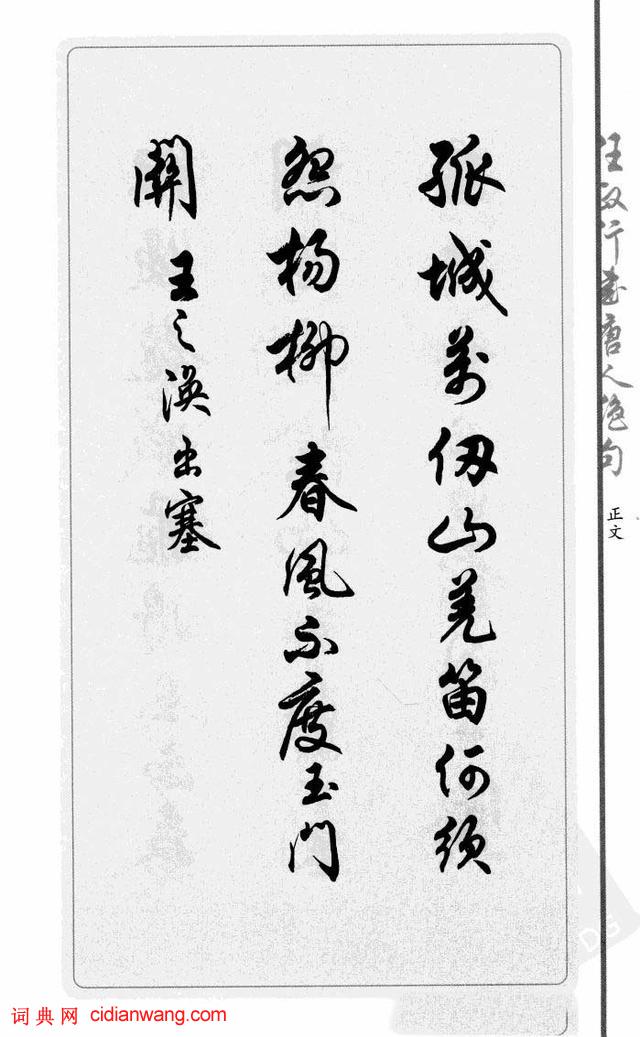 孤城萬仞山羌笛何須
怨楊柳春風不度玉門
關
王之渙出塞
任政行書唐人絕句
正文
词典网 cidianwang.com